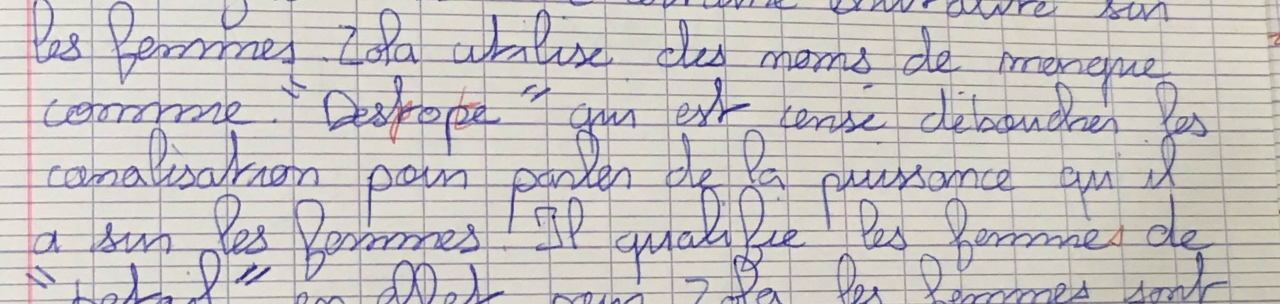 sur
les femmes. Zola utilise des noms de merque
comme "Destope" qui est censé déboucher les
canalisation pour parler de la puissance qu'il
a sur les femmes. Il qualifie les femmes de
" " en effet pour Zola les femmes sont